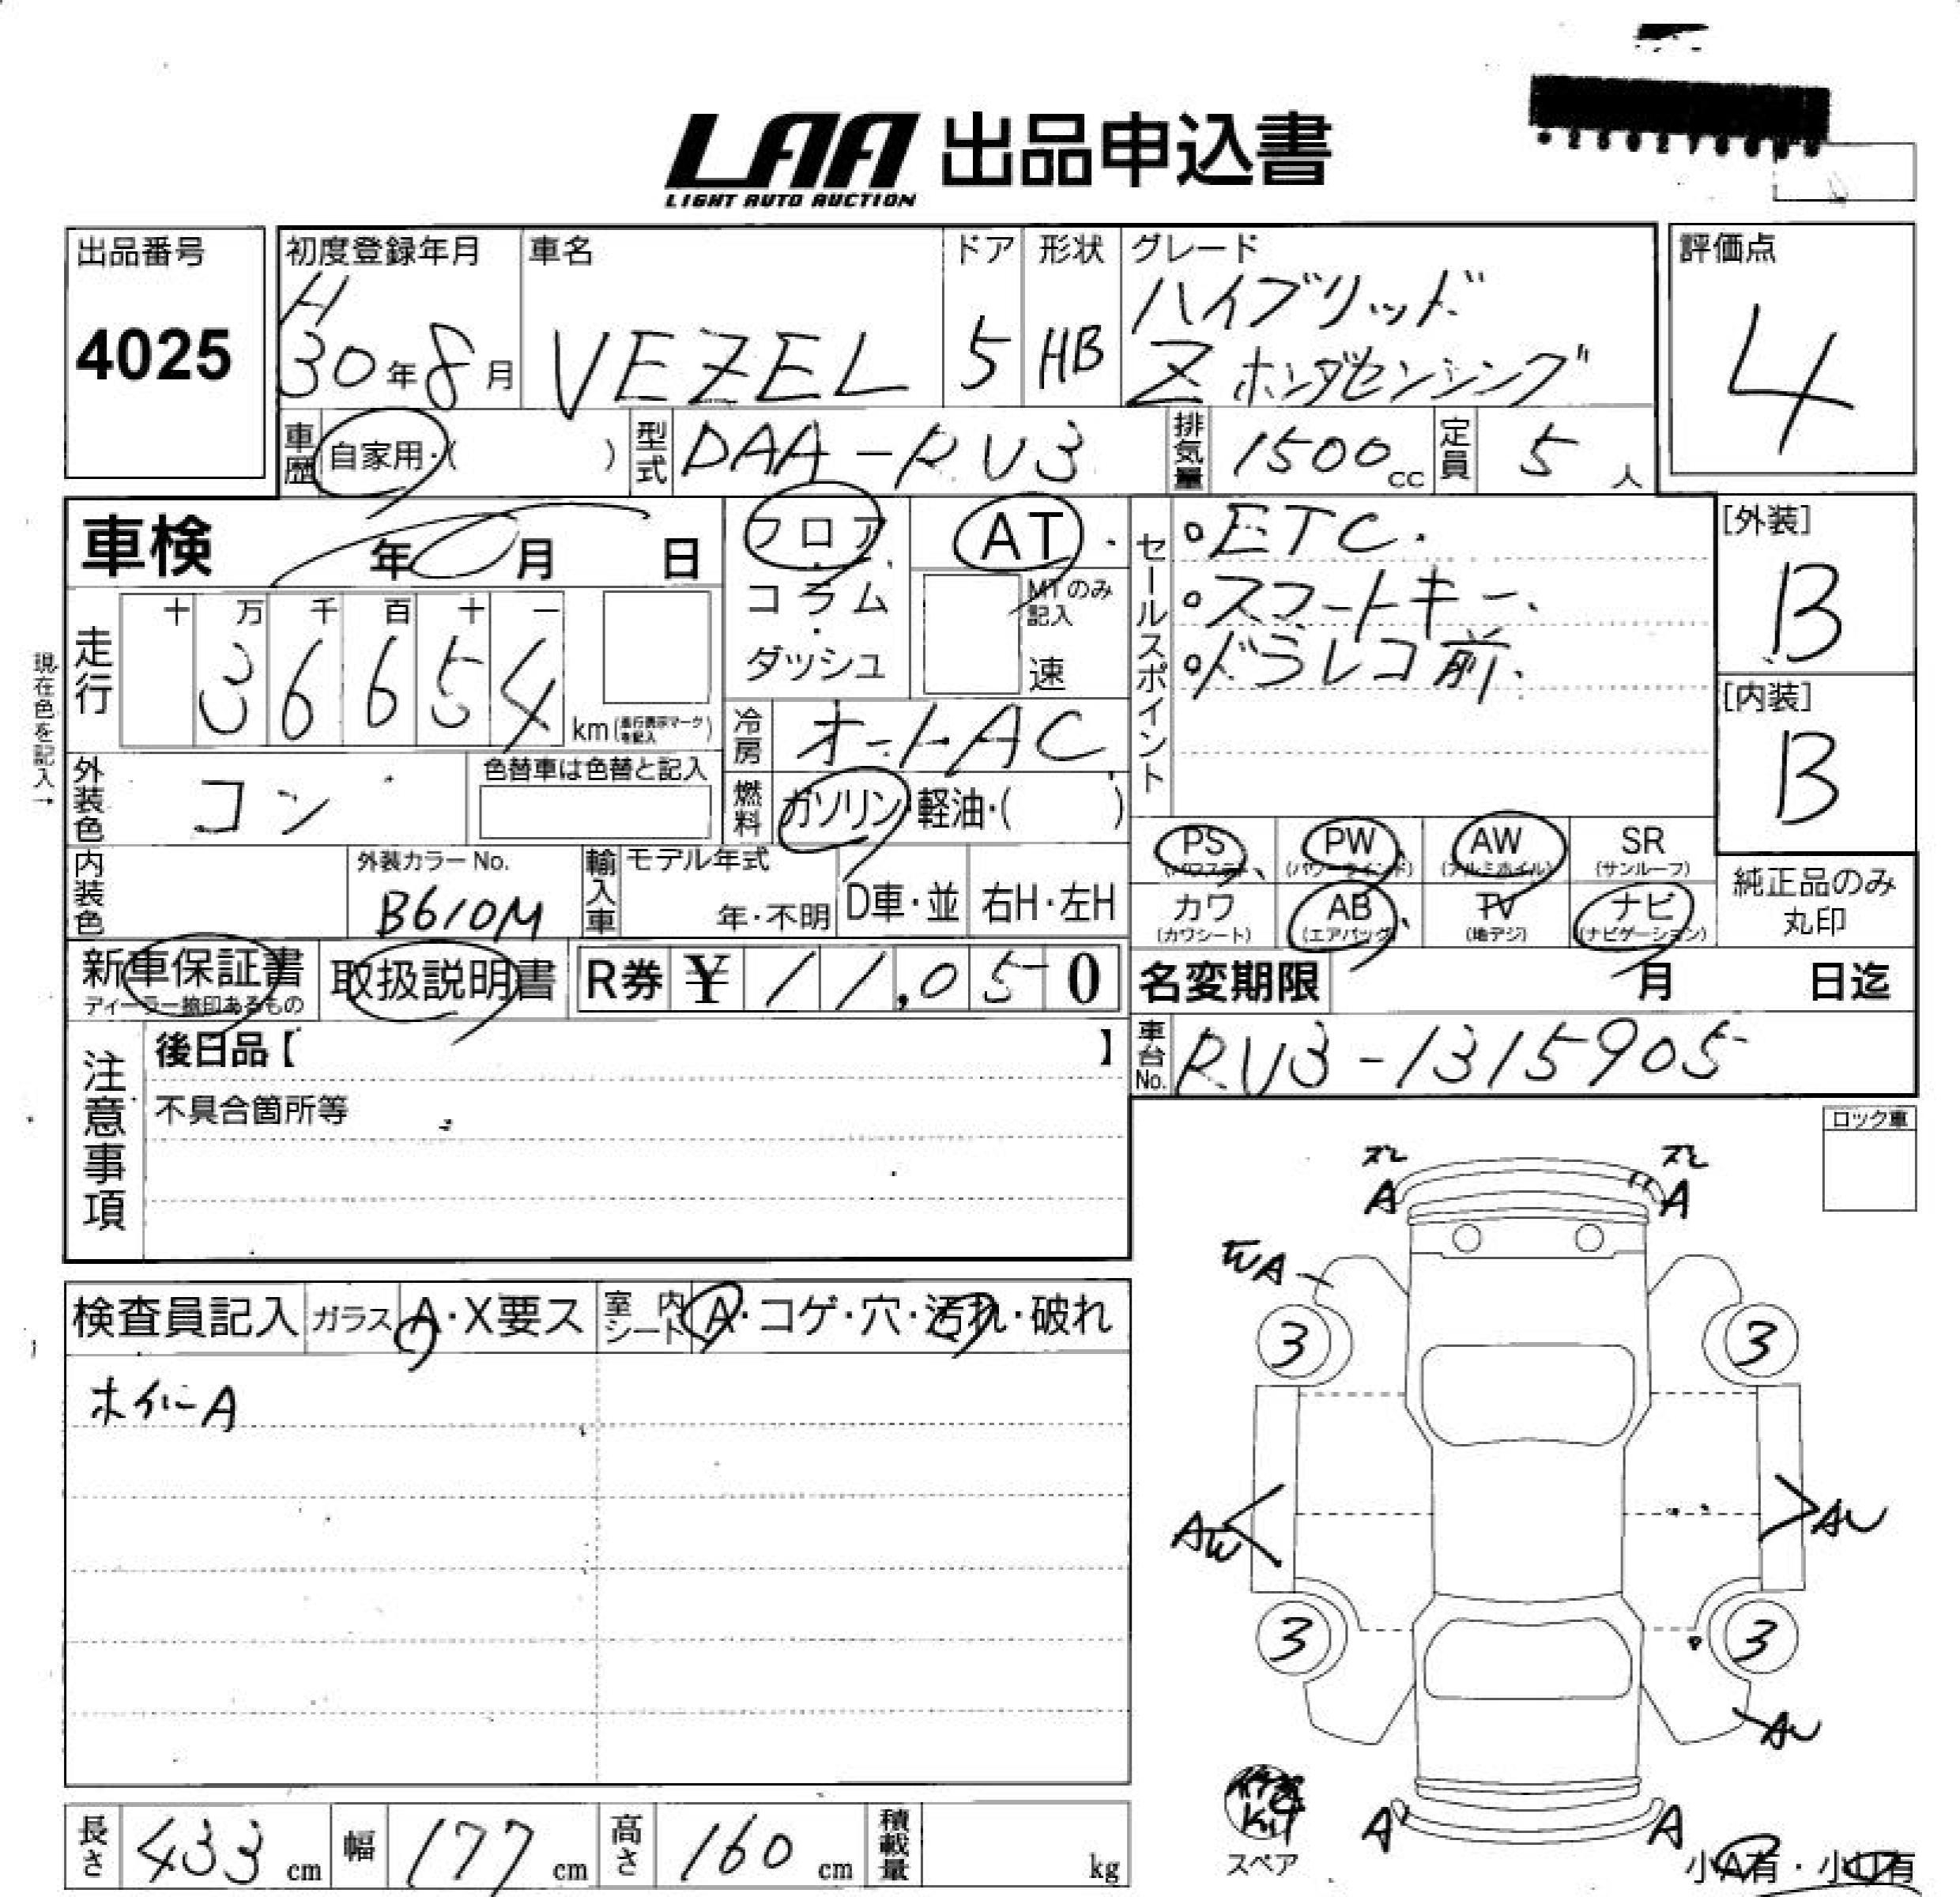 LAA 出品申込書
LIGHT AUTO AUCTION
出品番号
4025
初度登録年月
H
30年8月
車名
VEZEL
ドア
5
形状
HB
グレード
ハイブリッド
Z ホンダセンシング
評価点
4
車歴
自家用・( )
型式
DAA-RV3
排気量
1500cc
定員
5人
車検 年 月 日
フロア・
コラム
・
ダッシュ
AT・
MTのみ
記入
速
セールスポイント
◦ETC.
◦スマートキー、
◦ドラレコ前.
[外装]
B
[内装]
B
現在色を記入→
走行
十 万 千 百 十 一
3 6 6 5 4
km(走行表示マーク
を記入)
冷房
オートAC
外装色
コン
色替車は色替と記入
燃料
ガソリン・軽油・( )
内装色
外装カラーNo.
B610M
輸入車
モデル年式
年・不明
D車・並
右H・左H
PS
(パワステ)
PW
(パワーウインド)
AW
(アルミホイル)
SR
(サンルーフ)
カワ
(カワシート)
AB
(エアバッグ)
TV
(地デジ)
ナビ
(ナビゲーション)
純正品のみ
丸印
新車保証書
ディーラー捺印あるもの
取扱説明書
R券 ¥ 11,050
名変期限 月 日迄
車台No.
RV3-1315905
注意事項
後日品【 】
不具合箇所等
ロック車
検査員記入
ガラス
A・X要ス
室内
シート
A・コゲ・穴・汚れ・破れ
ホイルA
ズレ
A
ズレ
A
WA
3
3
AW
AU
3
3
AU
A
A
スペア
小A有・小U有
長さ
433cm
幅
177cm
高さ
160cm
積載量
kg